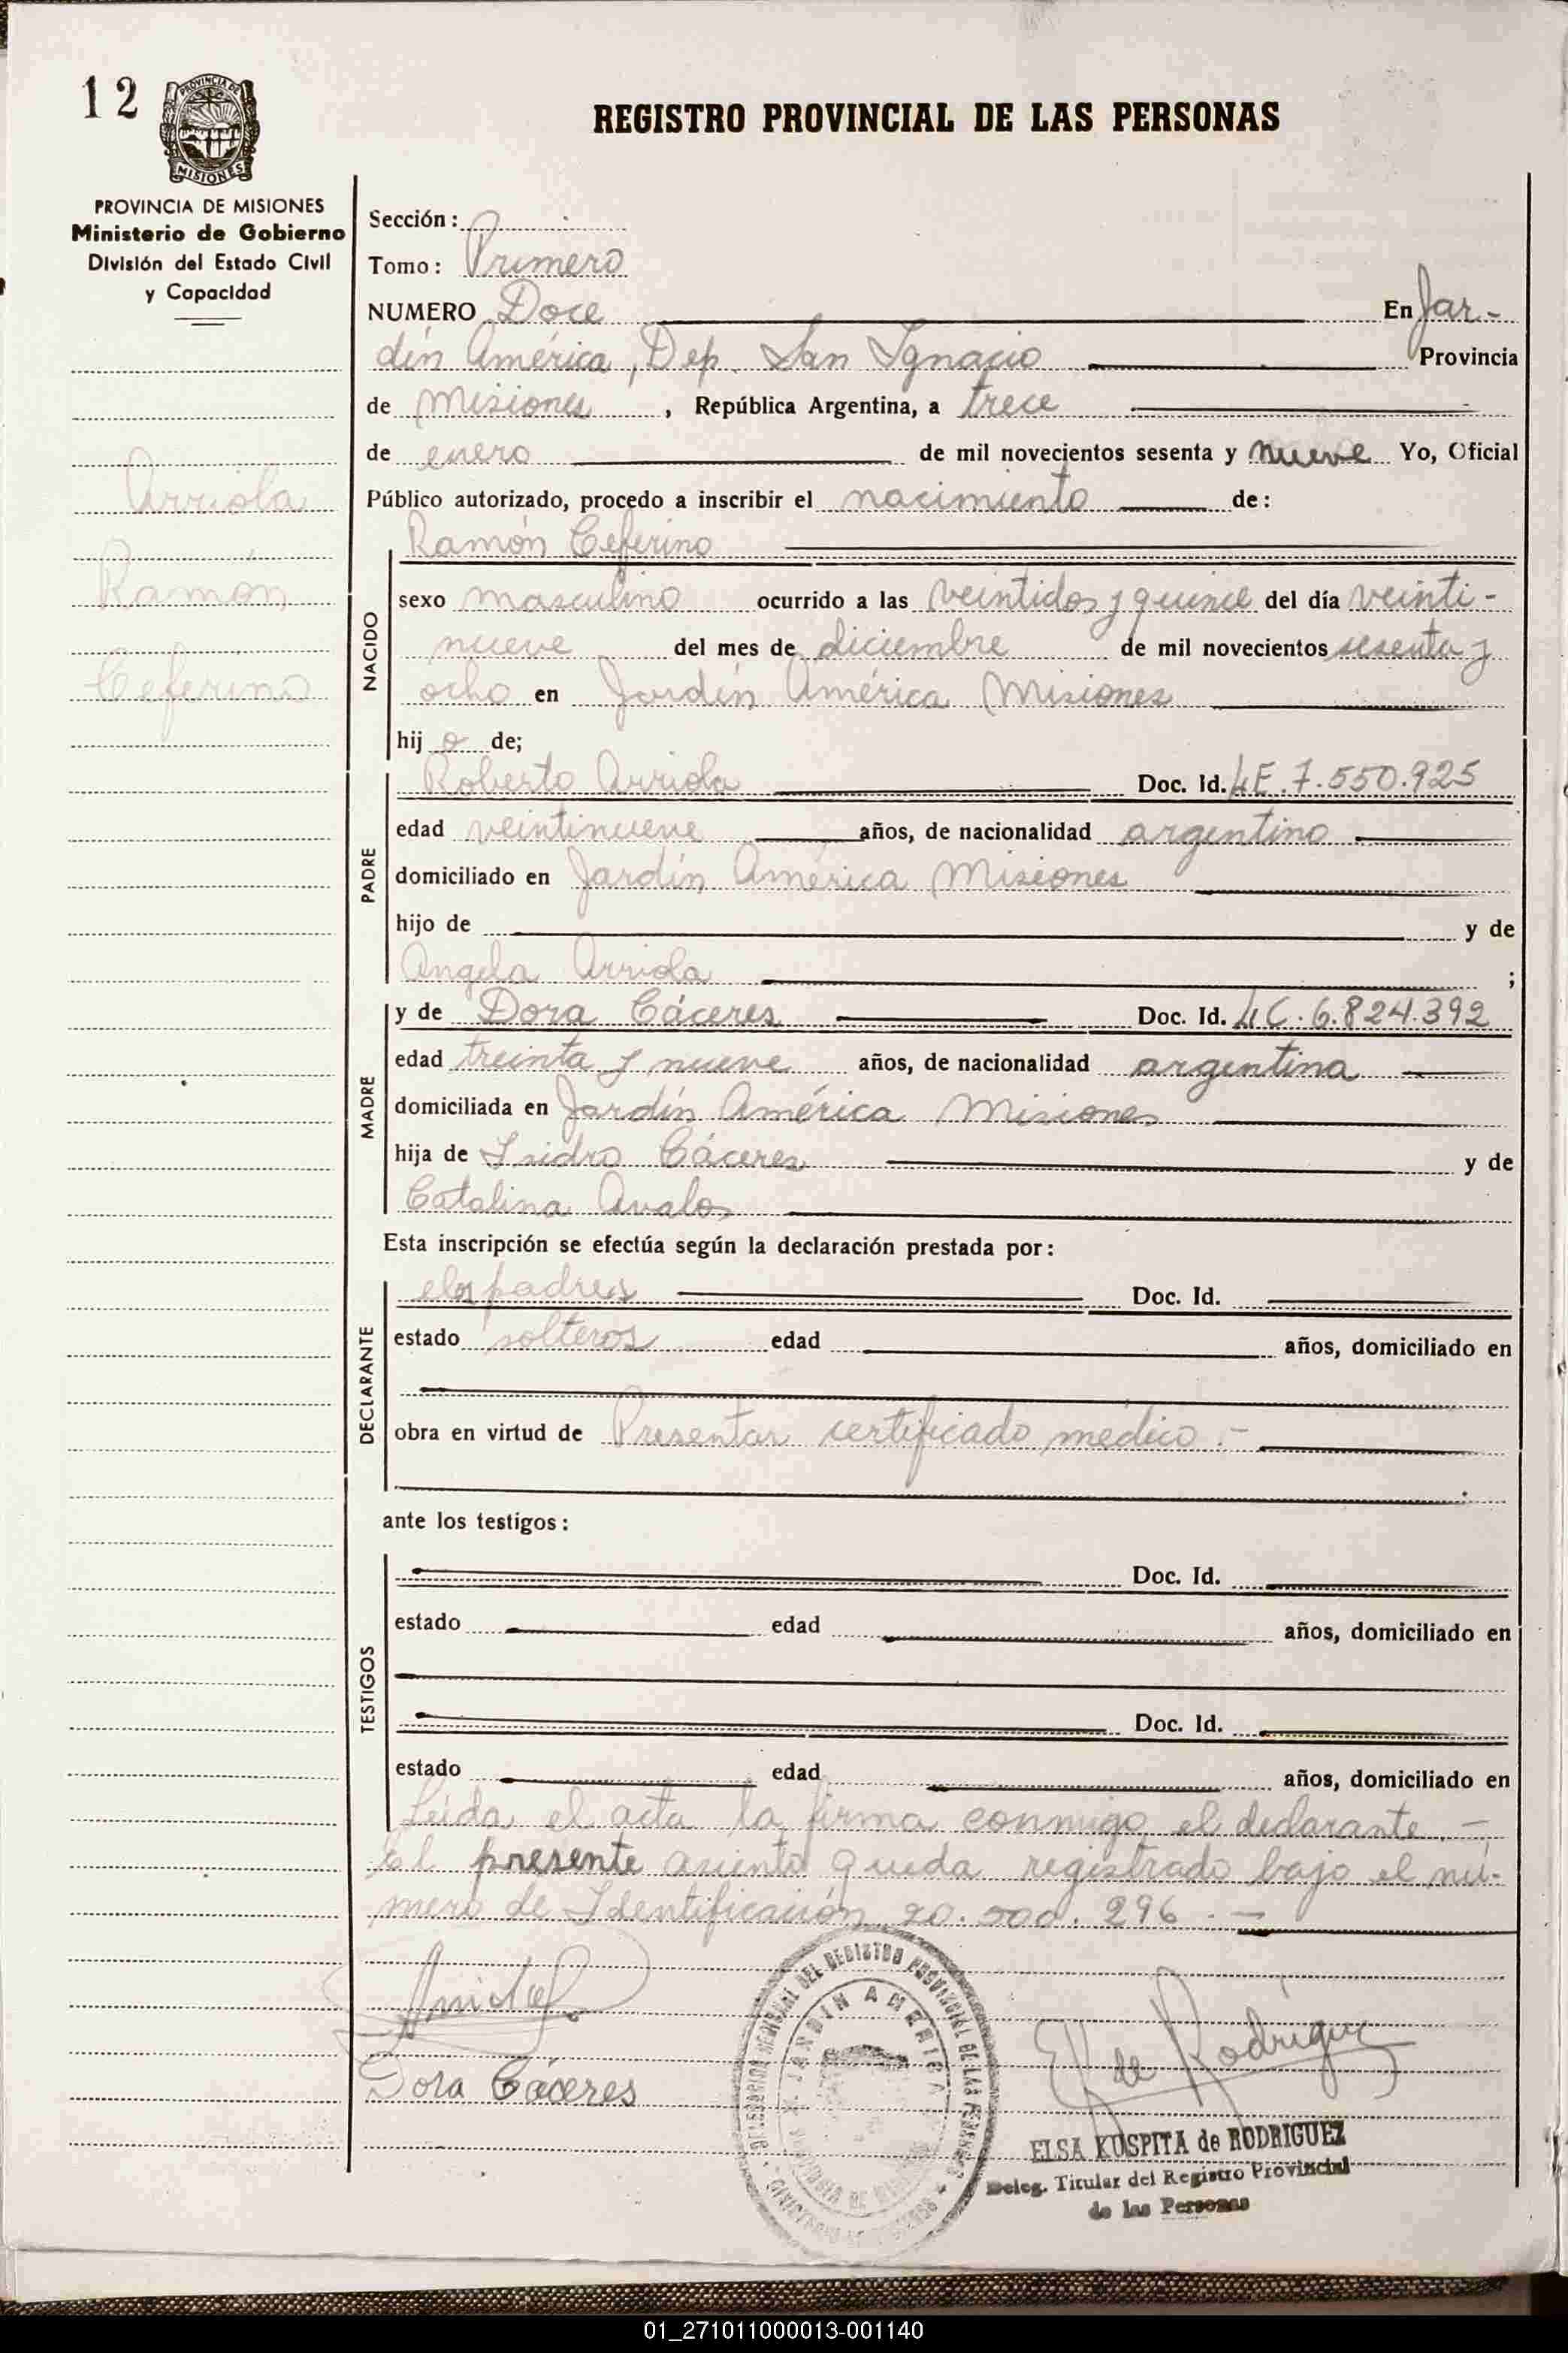 12
PROVINCIA DE
MISIONES
REGISTRO PROVINCIAL DE LAS PERSONAS
PROVINCIA DE MISIONES
Ministerio de Gobierno
División del Estado Civil
y Capacidad
Arriola
Ramón
Ceferino
Sección:
Tomo: Primero
NUMERO Doce En Jar-
dín América, Dep. San Ignacio Provincia
de Misiones, República Argentina, a trece
de enero de mil novecientos sesenta y nueve Yo, Oficial
Público autorizado, procedo a inscribir el nacimiento de:
Ramón Ceferino
NACIDO
sexo masculino ocurrido a las veintidos y quince del día veinti-
nueve del mes de diciembre de mil novecientos sesenta y
ocho en Jardín América Misiones
hij o de;
PADRE
Roberto Arriola Doc. Id. LE.7.550.925
edad veintinueve años, de nacionalidad argentino
domiciliado en Jardín América Misiones
hijo de y de
Angela Arriola ;
MADRE
y de Dora Cáceres Doc. Id. LC.6.824.392
edad treinta y nueve años, de nacionalidad argentina
domiciliada en Jardín América Misiones
hija de Isidro Cáceres y de
Catalina Avalos
Esta inscripción se efectúa según la declaración prestada por:
DECLARANTE
padres Doc. Id.
estado solteros edad años, domiciliado en
obra en virtud de Presentar certificado médico.-
ante los testigos:
TESTIGOS
Doc. Id.
estado edad años, domiciliado en
Doc. Id.
estado edad años, domiciliado en
Leida el acta la firma conmigo el declarante.-
El presente asiento queda registrado bajo el nú-
mero de Identificación 20.500.296.-
Dora Cáceres
JARDIN AMERICA
E K de Rodríguez
ELSA KUSPITA de RODRIGUEZ
Deleg. Titular del Registro Provincial
de las Personas
01_271011000013-001140